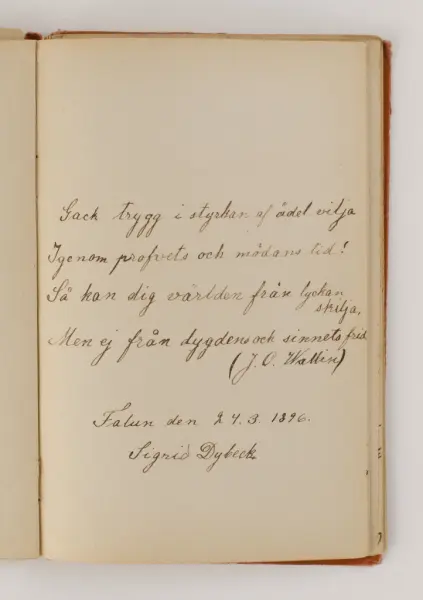 Gack trygg i styrkan af ädel vilja
Igenom profvets och mödans tid!
Så kan dig världen från lyckan
skilja,
Men ej från dygdens och sinnets frid
(J. O. Wallin)
Falun den 24.3.1896.
Sigrid Dybeck.